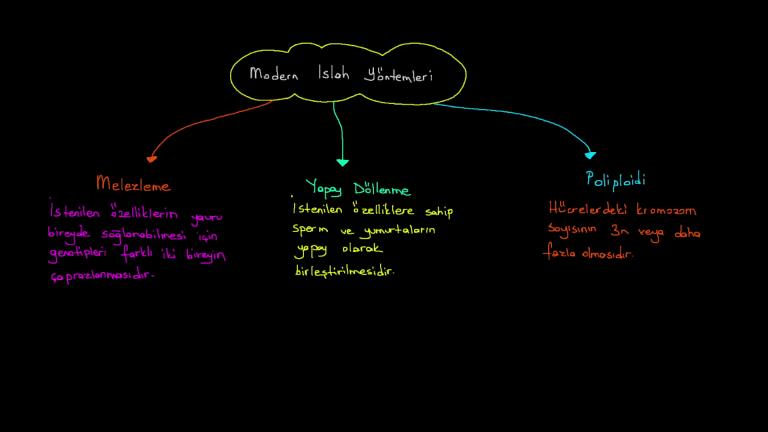 Modern Islah Yöntemleri
Melezleme
İstenilen özelliklerin yavru
bireyde sağlanabilmesi için
genotipleri farklı iki bireyin
çaprazlanmasıdır.
Yapay Döllenme
İstenilen özelliklere sahip
sperm ve yumurtaların
yapay olarak
birleştirilmesidir.
Poliploidi
Hücrelerdeki kromozom
sayısının 3n veya daha
fazla olmasıdır.